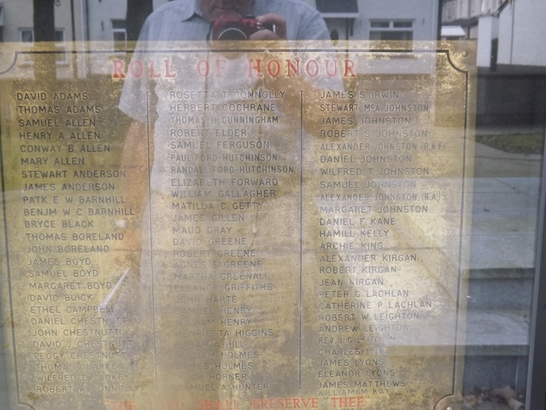 ROLL OF HONOUR
DAVID ADAMS
THOMAS ADAMS
SAMUEL ALLEN
HENRY A ALLEN
CONWAY B. ALLEN
MARY ALLEN
STEWART ANDERSON
JAMES ANDERSON
PATK E W BARNHILL
BENJM W C BARNHILL
BRYCE BLACK
THOMAS BORELAND
JOHN BORELAND
JAMES BOYD
SAMUEL BOYD
MARGARET BOYD
DAVID BUICK
ETHEL CAMPBELL
DANIEL CHESTNUTT
JOHN CHESTNUTT
DAVID J CHESTNUTT
CHESTNUTT
THOMAS
ROBERT
ROSETTA T CONNOLLY
HERBERT COCHRANE
THOMAS H CUNNINGHAM
ROBERT ELDER
SAMUEL FERGUSON
PAUL FORD-HUTCHINSON
RANDALL FORD-HUTCHINSON
ELIZABETH FORWARD
WILLIAM GALLAGHER
MATILDA C. GETTY
JAMES GILLEN
MAUD GRAY
DAVID GREENE
ROBERT GREENE
AGNES E GREENE
MARTHA GREENALL
GRIFFITHS
JOHN HARTE
HENRY
HENRY
HIGGINS
HOLMES
HOLMES
HUNTER
JAMES S IRWIN
STEWART MSA JOHNSTON
JAMES JOHNSTON
ROBERT S JOHNSTON
ALEXANDER JOHNSTON (R.A.F.)
DANIEL JOHNSTON
WILFRED T JOHNSTON
SAMUEL JOHNSTON
ALEXANDER JOHNSTON (R.A.)
MARGARET JOHNSTON
DANIEL F KANE
HAMILL KELLY
ARCHIE KING
ALEXANDER KIRGAN
ROBERT KIRGAN
JEAN KIRGAN
PETER G LACHLAN
CATHERINE P LACHLAN
ROBERT W LEIGHTON
ANDREW LEIGHTON
CHARLES
JAMES LYONS
ELEANOR LYONS
JAMES MATTHEWS
PRESERVE THEE